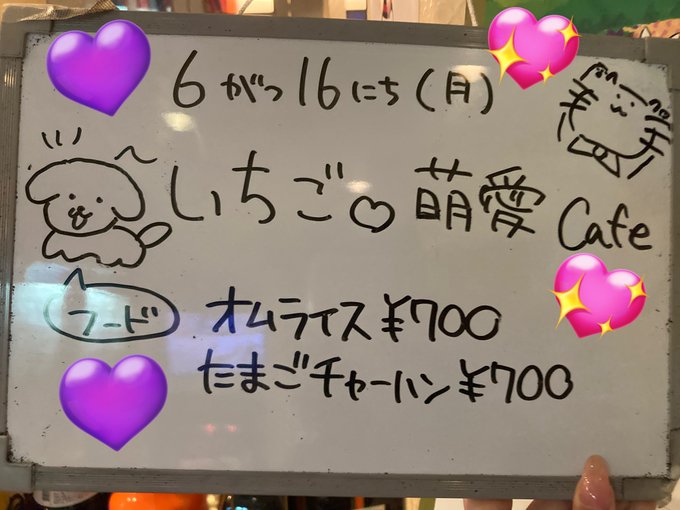 6がつ16にち(月)
いちご♡萌愛 Cafe
フード オムライス ¥700
たまごチャーハン ¥700